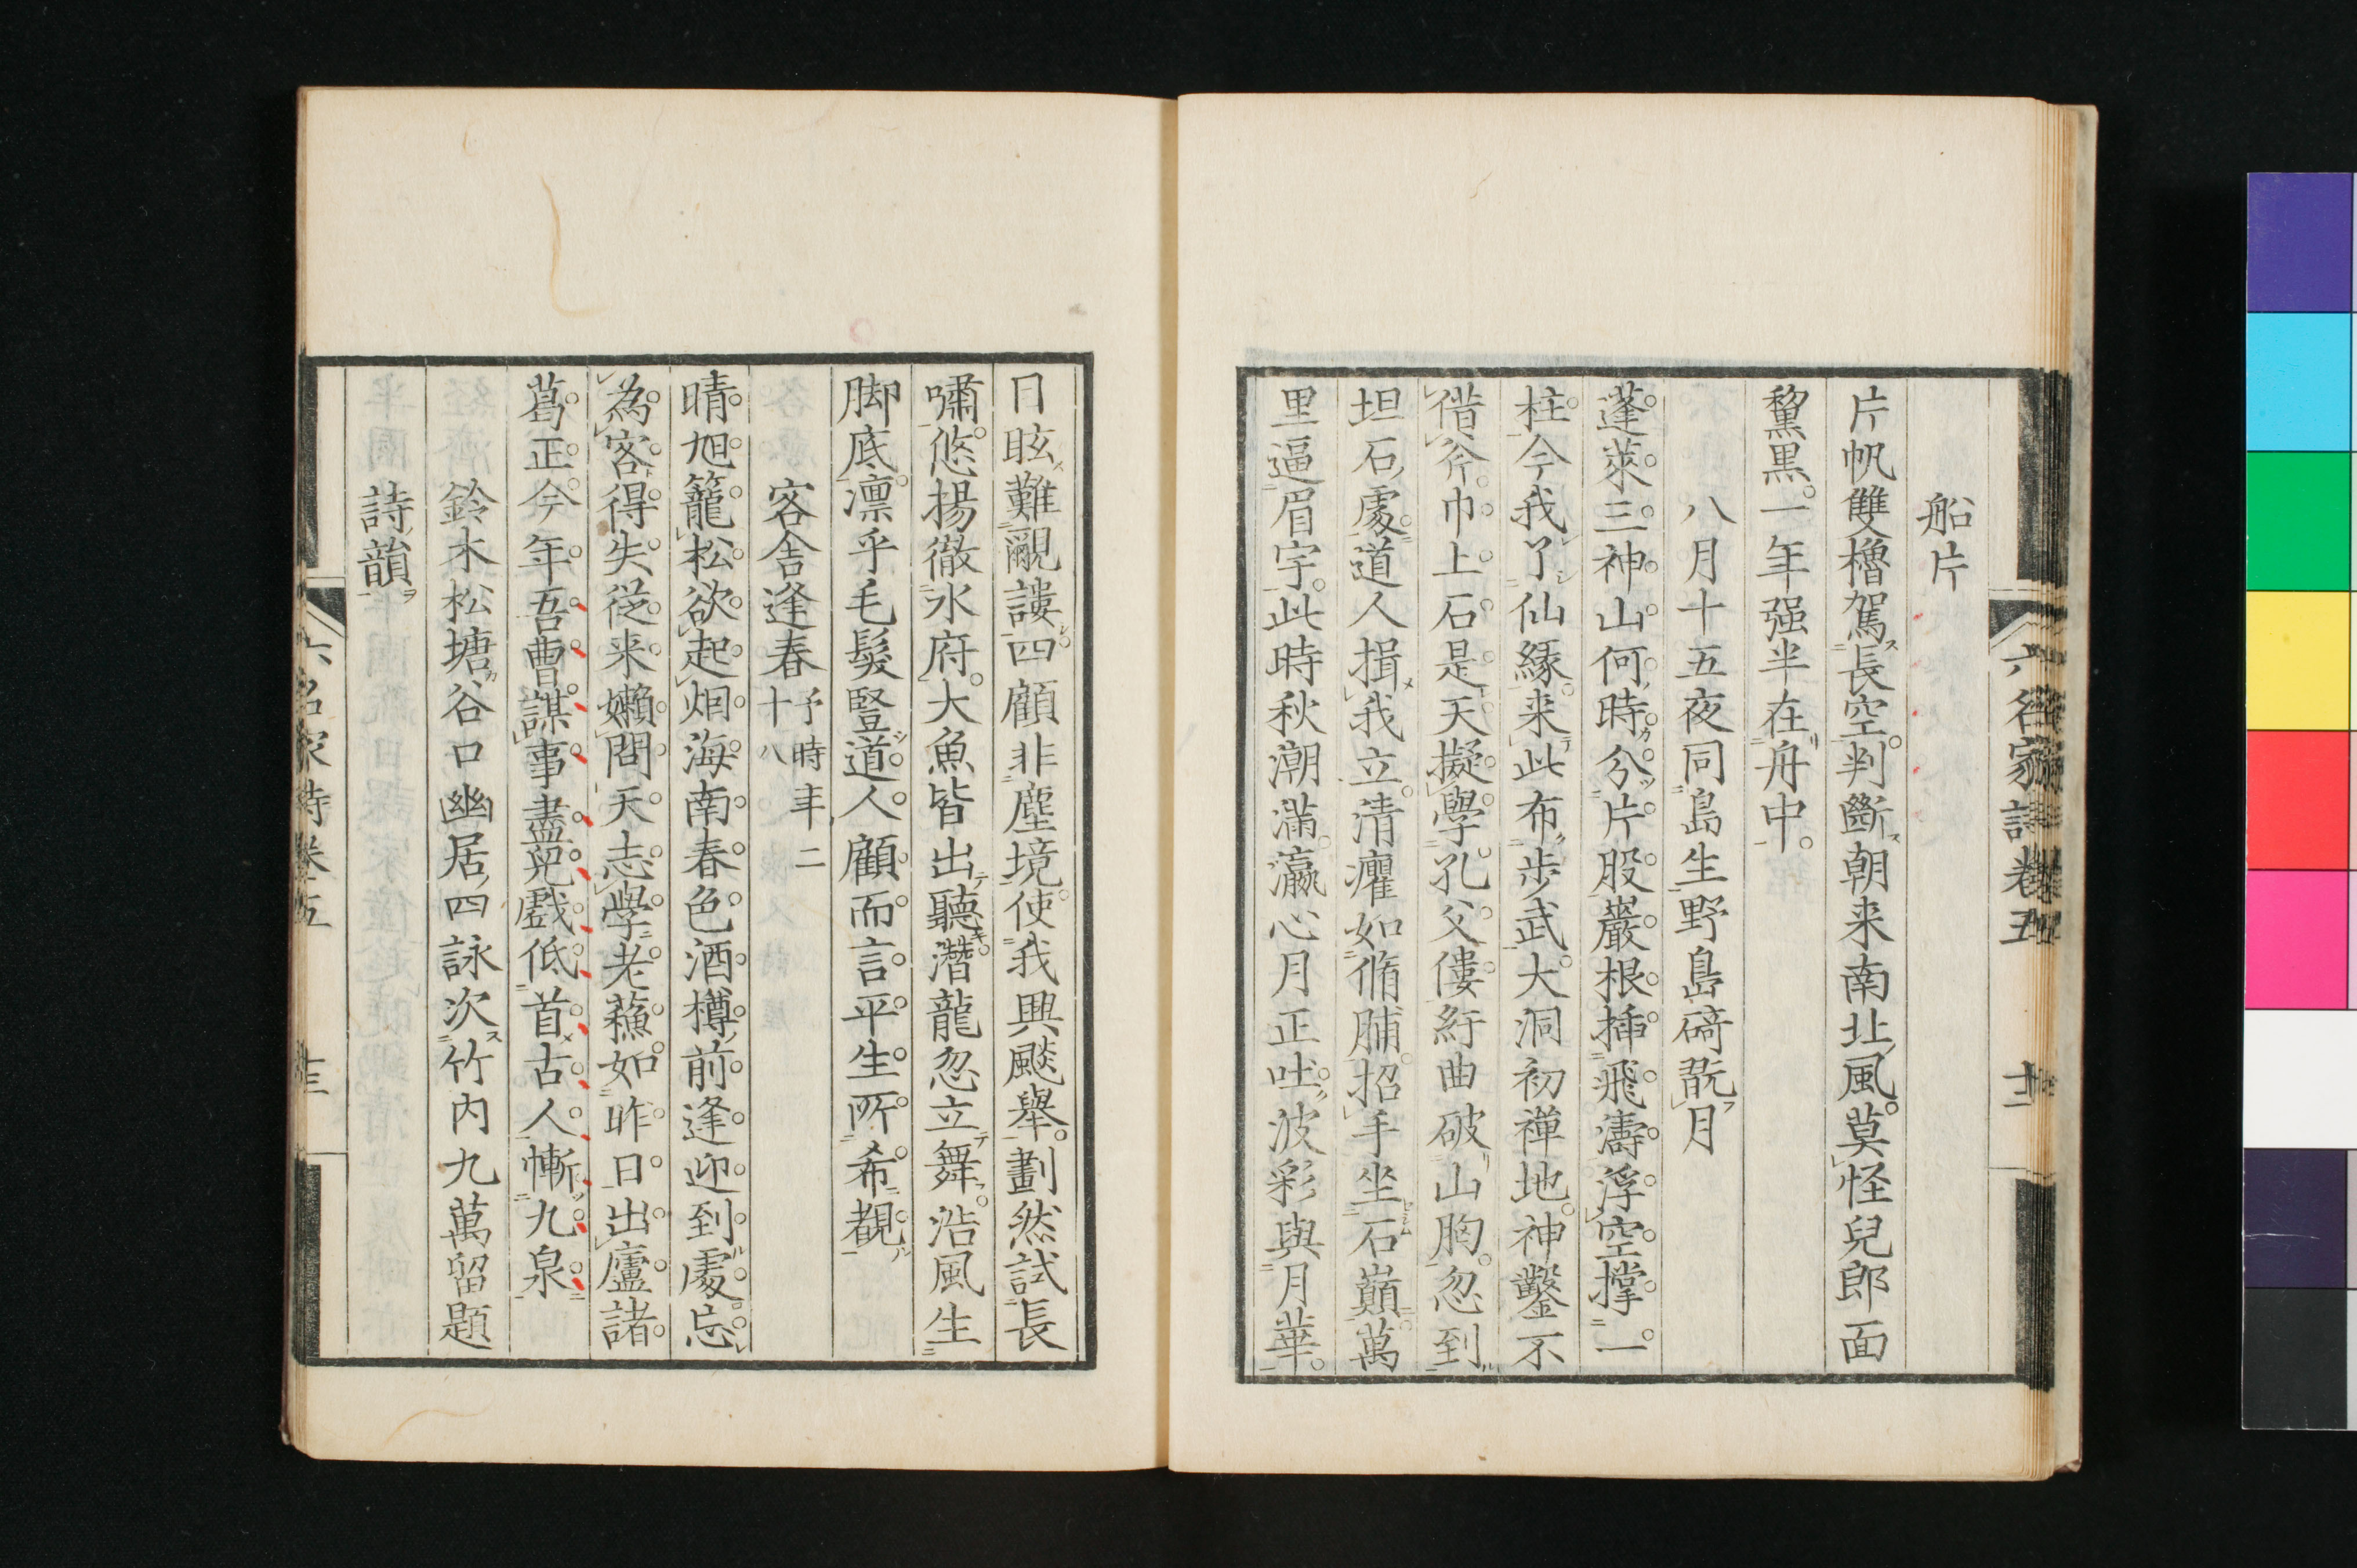 六名家詩卷五
船片
片帆雙櫓駕長空判斷朝来南北風莫怪兒郎面
黧黒一年强半在舟中
八月十五夜同島生野島碕翫月
蓬莱三神山何時分片股巖根揷飛濤浮空撑一
柱今我了仙縁来此布歩武大洞初禅地神鑿不
借斧巾上石是天擬學孔父僂紆曲破山胸忽到
坦石處道人揖我立清癯如脩脯招手坐石巓萬
里逼眉宇此時秋潮滿瀛心月正吐波彩與月華
日眩難覼謱四顧非塵境使我興颷舉劃然試長
嘯悠揚徹水府大魚皆出聽潛龍忽立舞浩風生
脚底凛乎毛髮豎道人顧而言平生所希覩
客舍逢春 予時年二十八
晴旭籠松欲起烟海南春色酒樽前逢迎到處忘
為客得失從来嬾問天志學老蘓如昨日出廬諸
葛正今年吾曹謀事盡兒戲低首古人慚九泉
鈴木松塘谷口幽居四詠次竹内九萬留題
詩韻
六名家詩卷五